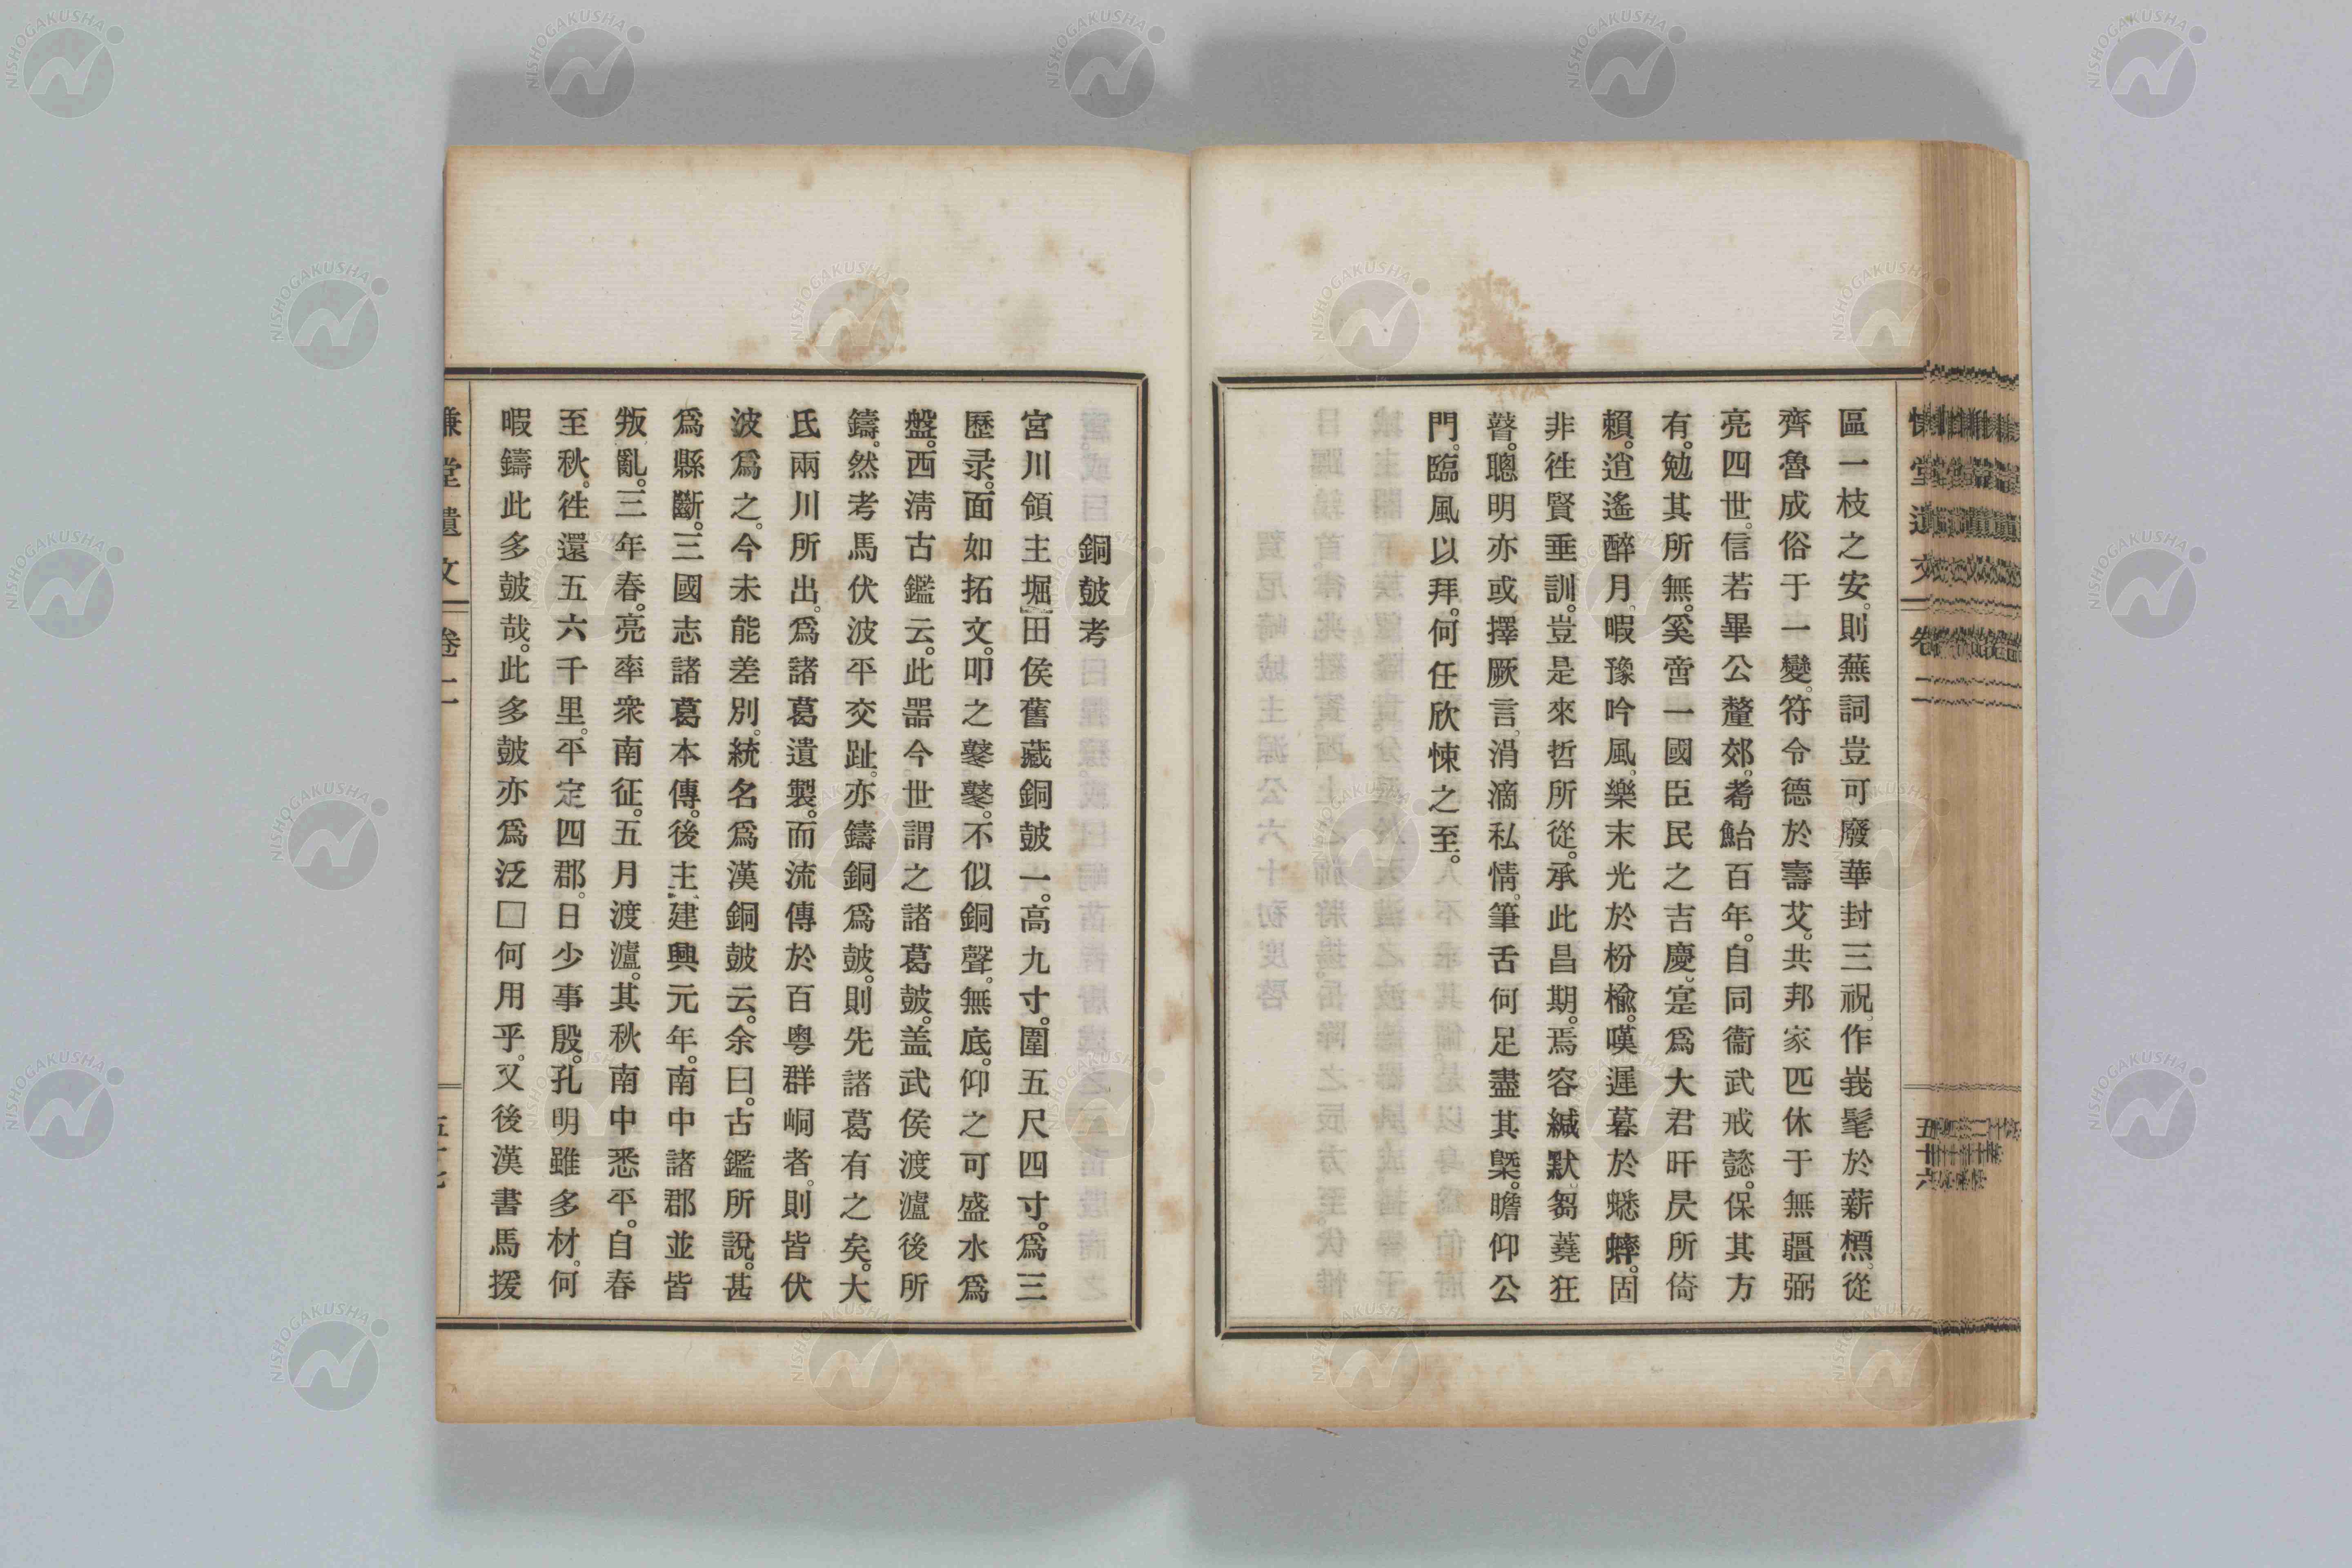 區一枝之安。則蕪詞豈可廢華封三祝。作峩髦於薪槱。從
齊魯成俗于一變。符令德於壽艾。共邦家匹休于無疆弼
亮四世。信若畢公釐郊。耇鮐百年。自同衞武戒懿。保其方
有。勉其所無。奚啻一國臣民之吉慶。寔爲大君旰昃所倚
賴。逍遙醉月。暇豫吟風。樂末光於枌楡。嘆遲暮於蟋蟀。固
非徃賢垂訓。豈是來哲所從。承此昌期。焉容緘默。芻蕘狂
瞽。聰明亦或擇厥言。涓滴私情。筆舌何足盡其槩。瞻仰公
門。臨風以拜。何任欣悚之至。
五十六
銅皷考
宮川領主堀田侯舊藏銅皷一。高九寸。圍五尺四寸。爲三
歷录。面如拓文。叩之鼕鼕。不似銅聲。無底。仰之可盛水爲
盤。西淸古鑑云。此器今世謂之諸葛皷。盖武侯渡瀘後所
鑄。然考馬伏波平交趾。亦鑄銅爲皷。則先諸葛有之矣。大
氐兩川所出。爲諸葛遺製。而流傳於百粤群峒者。則皆伏
波爲之。今未能差別。統名爲漢銅皷云。余曰。古鑑所說。甚
爲縣斷。三國志諸葛本傳。後主建興元年。南中諸郡並皆
叛亂。三年春。亮率衆南征。五月渡瀘。其秋南中悉平。自春
至秋。徃還五六千里。平定四郡。日少事殷。孔明雖多材。何
暇鑄此多皷哉。此多皷亦爲泛□何用乎。又後漢書馬援